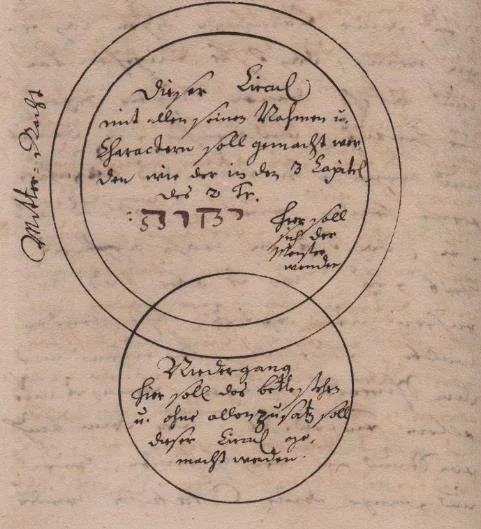 Mitter=Nacht
Dieser Circul
mit allen seinen Nahmen u.
Characktern soll gemacht wer
den wie der in den 3 Capitel
des 2 Tr.
יהוה
hier soll
sich der
Meister
wenden
Niedergang
hier soll das bette stehen
u. ohne allen zusatz soll
dieser Circul ge,
macht werden.